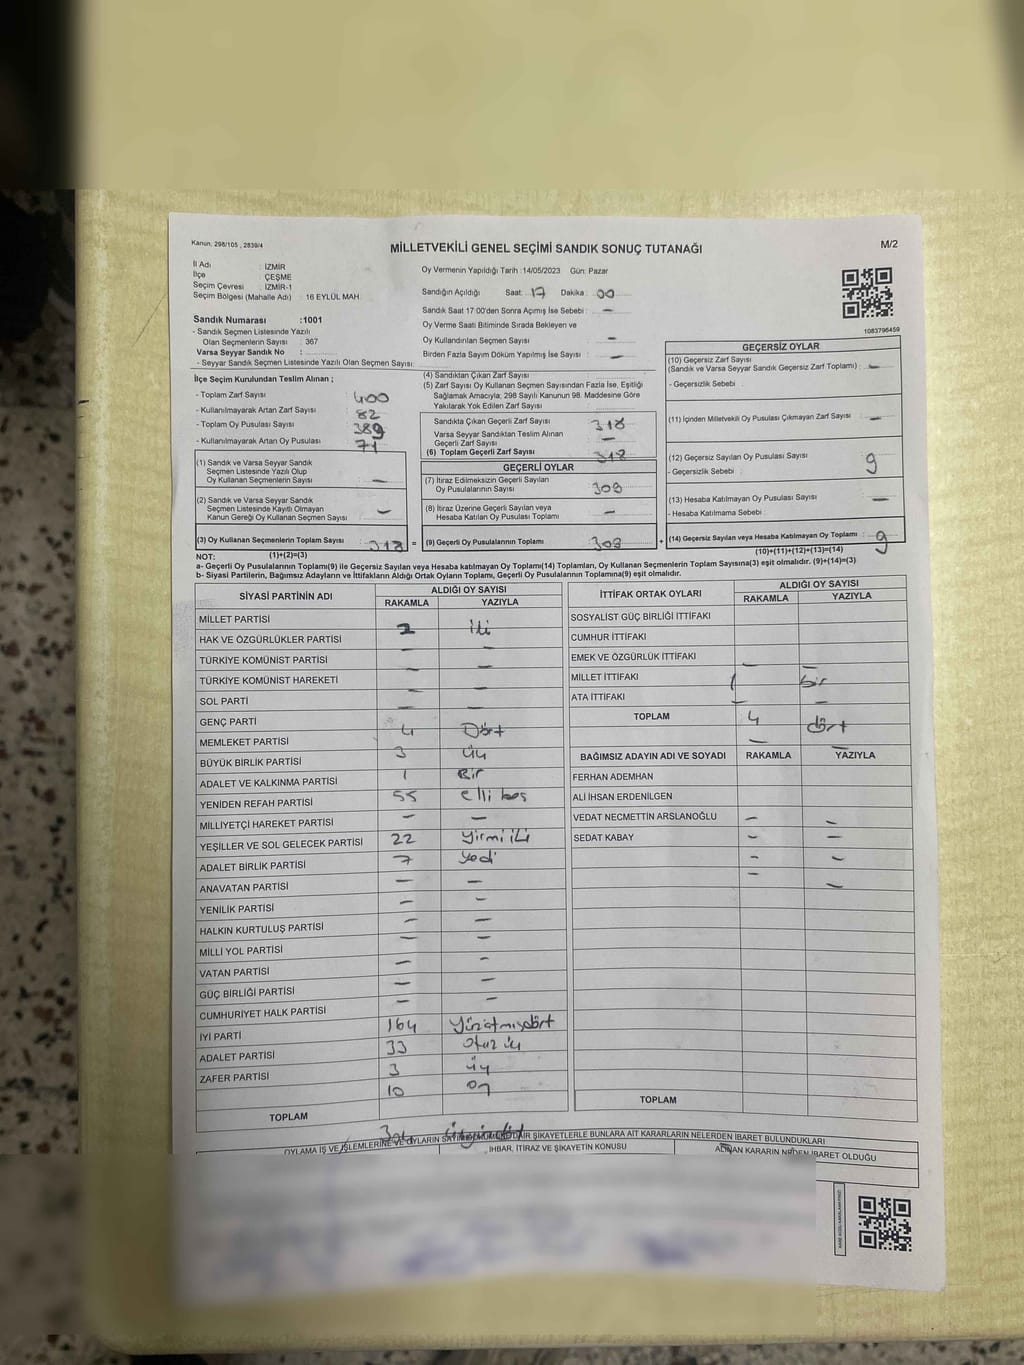 Kanun, 298/105 , 2839/4
MİLLETVEKİLİ GENEL SEÇİMİ SANDIK SONUÇ TUTANAĞI
M/2
İl Adı : İZMİR
İlçe : ÇEŞME
Seçim Çevresi : İZMİR-1
Seçim Bölgesi (Mahalle Adı) : 16 EYLÜL MAH.
Oy Vermenin Yapıldığı Tarih :14/05/2023 Gün: Pazar
Sandığın Açıldığı Saat: 17 Dakika: 00
Sandık Saat 17:00'den Sonra Açımış İse Sebebi : —
Oy Verme Saati Bitiminde Sırada Bekleyen ve
Oy Kullandırılan Seçmen Sayısı : —
Birden Fazla Sayım Döküm Yapılmış İse Sayısı : —
1083796459
Sandık Numarası :1001
- Sandık Seçmen Listesinde Yazılı
Olan Seçmenlerin Sayısı : 367
Varsa Seyyar Sandık No :
- Seyyar Sandık Seçmen Listesinde Yazılı Olan Seçmen Sayısı:
İlçe Seçim Kurulundan Teslim Alınan ;
- Toplam Zarf Sayısı : 400
- Kullanılmayarak Artan Zarf Sayısı : 82
- Toplam Oy Pusulası Sayısı : 389
- Kullanılmayarak Artan Oy Pusulası : 71
(1) Sandık ve Varsa Seyyar Sandık
Seçmen Listesinde Yazılı Olup
Oy Kullanan Seçmenlerin Sayısı : —
(2) Sandık ve Varsa Seyyar Sandık
Seçmen Listesinde Kayıtlı Olmayan
Kanun Gereği Oy Kullanan Seçmen Sayısı : —
(3) Oy Kullanan Seçmenlerin Toplam Sayısı : 318 =
(4) Sandıktan Çıkan Zarf Sayısı :
(5) Zarf Sayısı Oy Kullanan Seçmen Sayısından Fazla İse, Eşitliği
Sağlamak Amacıyla; 298 Sayılı Kanunun 98. Maddesine Göre
Yakılarak Yok Edilen Zarf Sayısı :
Sandıkta Çıkan Geçerli Zarf Sayısı : 318
Varsa Seyyar Sandıktan Teslim Alınan
Geçerli Zarf Sayısı : —
(6) Toplam Geçerli Zarf Sayısı : 318
GEÇERLİ OYLAR
(7) İtiraz Edilmeksizin Geçerli Sayılan
Oy Pusulalarının Sayısı : 309
(8) İtiraz Üzerine Geçerli Sayılan veya
Hesaba Katılan Oy Pusulası Toplamı : —
(9) Geçerli Oy Pusulalarının Toplamı : 309 +
GEÇERSİZ OYLAR
(10) Geçersiz Zarf Sayısı
(Sandık ve Varsa Seyyar Sandık Geçersiz Zarf Toplamı) : —
- Geçersizlik Sebebi :
(11) İçinden Milletvekili Oy Pusulası Çıkmayan Zarf Sayısı : —
(12) Geçersiz Sayılan Oy Pusulası Sayısı : 9
- Geçersizlik Sebebi :
(13) Hesaba Katılmayan Oy Pusulası Sayısı : —
- Hesaba Katılmama Sebebi :
(14) Geçersiz Sayılan veya Hesaba Katılmayan Oy Toplamı : 9
NOT: (1)+(2)=(3)
(10)+(11)+(12)+(13)=(14)
a- Geçerli Oy Pusulalarının Toplamı(9) ile Geçersiz Sayılan veya Hesaba katılmayan Oy Toplamı(14) Toplamları, Oy Kullanan Seçmenlerin Toplam Sayısına(3) eşit olmalıdır. (9)+(14)=(3)
b- Siyasi Partilerin, Bağımsız Adayların ve İttifakların Aldığı Ortak Oyların Toplamı, Geçerli Oy Pusulalarının Toplamına(9) eşit olmalıdır.
SİYASİ PARTİNİN ADI ALDIĞI OY SAYISI
RAKAMLA YAZIYLA
MİLLET PARTİSİ 2 iki
HAK VE ÖZGÜRLÜKLER PARTİSİ — —
TÜRKİYE KOMÜNİST PARTİSİ — —
TÜRKİYE KOMÜNİST HAREKETİ — —
SOL PARTİ — —
GENÇ PARTİ 4 Dört
MEMLEKET PARTİSİ 3 üç
BÜYÜK BİRLİK PARTİSİ 1 Bir
ADALET VE KALKINMA PARTİSİ 55 elli beş
YENİDEN REFAH PARTİSİ — —
MİLLİYETÇİ HAREKET PARTİSİ 22 yirmi iki
YEŞİLLER VE SOL GELECEK PARTİSİ 7 yedi
ADALET BİRLİK PARTİSİ — —
ANAVATAN PARTİSİ — —
YENİLİK PARTİSİ — —
HALKIN KURTULUŞ PARTİSİ — —
MİLLİ YOL PARTİSİ — —
VATAN PARTİSİ — —
GÜÇ BİRLİĞİ PARTİSİ — —
CUMHURİYET HALK PARTİSİ 164 Yüzatmışdört
İYİ PARTİ 33 Otuz üç
ADALET PARTİSİ 3 üç
ZAFER PARTİSİ 10 on
TOPLAM
İTTİFAK ORTAK OYLARI ALDIĞI OY SAYISI
RAKAMLA YAZIYLA
SOSYALİST GÜÇ BİRLİĞİ İTTİFAKI
CUMHUR İTTİFAKI
EMEK VE ÖZGÜRLÜK İTTİFAKI — —
MİLLET İTTİFAKI 1 bir
ATA İTTİFAKI — —
TOPLAM 4 dört
— —
BAĞIMSIZ ADAYIN ADI VE SOYADI RAKAMLA YAZIYLA
FERHAN ADEMHAN
ALİ İHSAN ERDENİLGEN
VEDAT NECMETTİN ARSLANOĞLU — —
SEDAT KABAY — —
— —
— —
TOPLAM
OYLAMA İŞ VE İŞLEMLERİNE VE OYLARIN SAYIM DÖKÜMÜNE DAİR ŞİKAYETLERLE BUNLARA AİT KARARLARIN NELERDEN İBARET BULUNDUKLARI
İHBAR, İTİRAZ VE ŞİKAYETİN KONUSU
ALINAN KARARIN NEDEN İBARET OLDUĞU